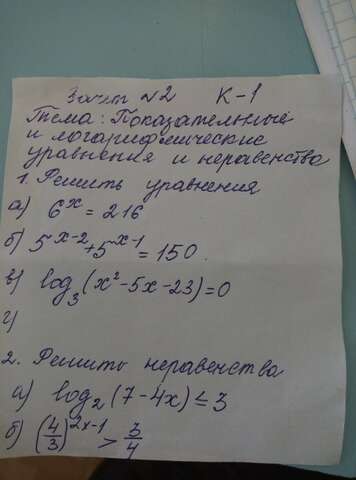 Зачет №2 К-1
Тема: Показательные
и логарифмические
уравнения и неравенства
1. Решить уравнения
а) 6^x = 216
б) 5^(x-2) + 5^(x-1) = 150
в) log₃(x²-5x-23)=0
г)
2. Решить неравенства
а) log₂(7-4x) ≤ 3
б) (4/3)^(2x-1) > 3/4